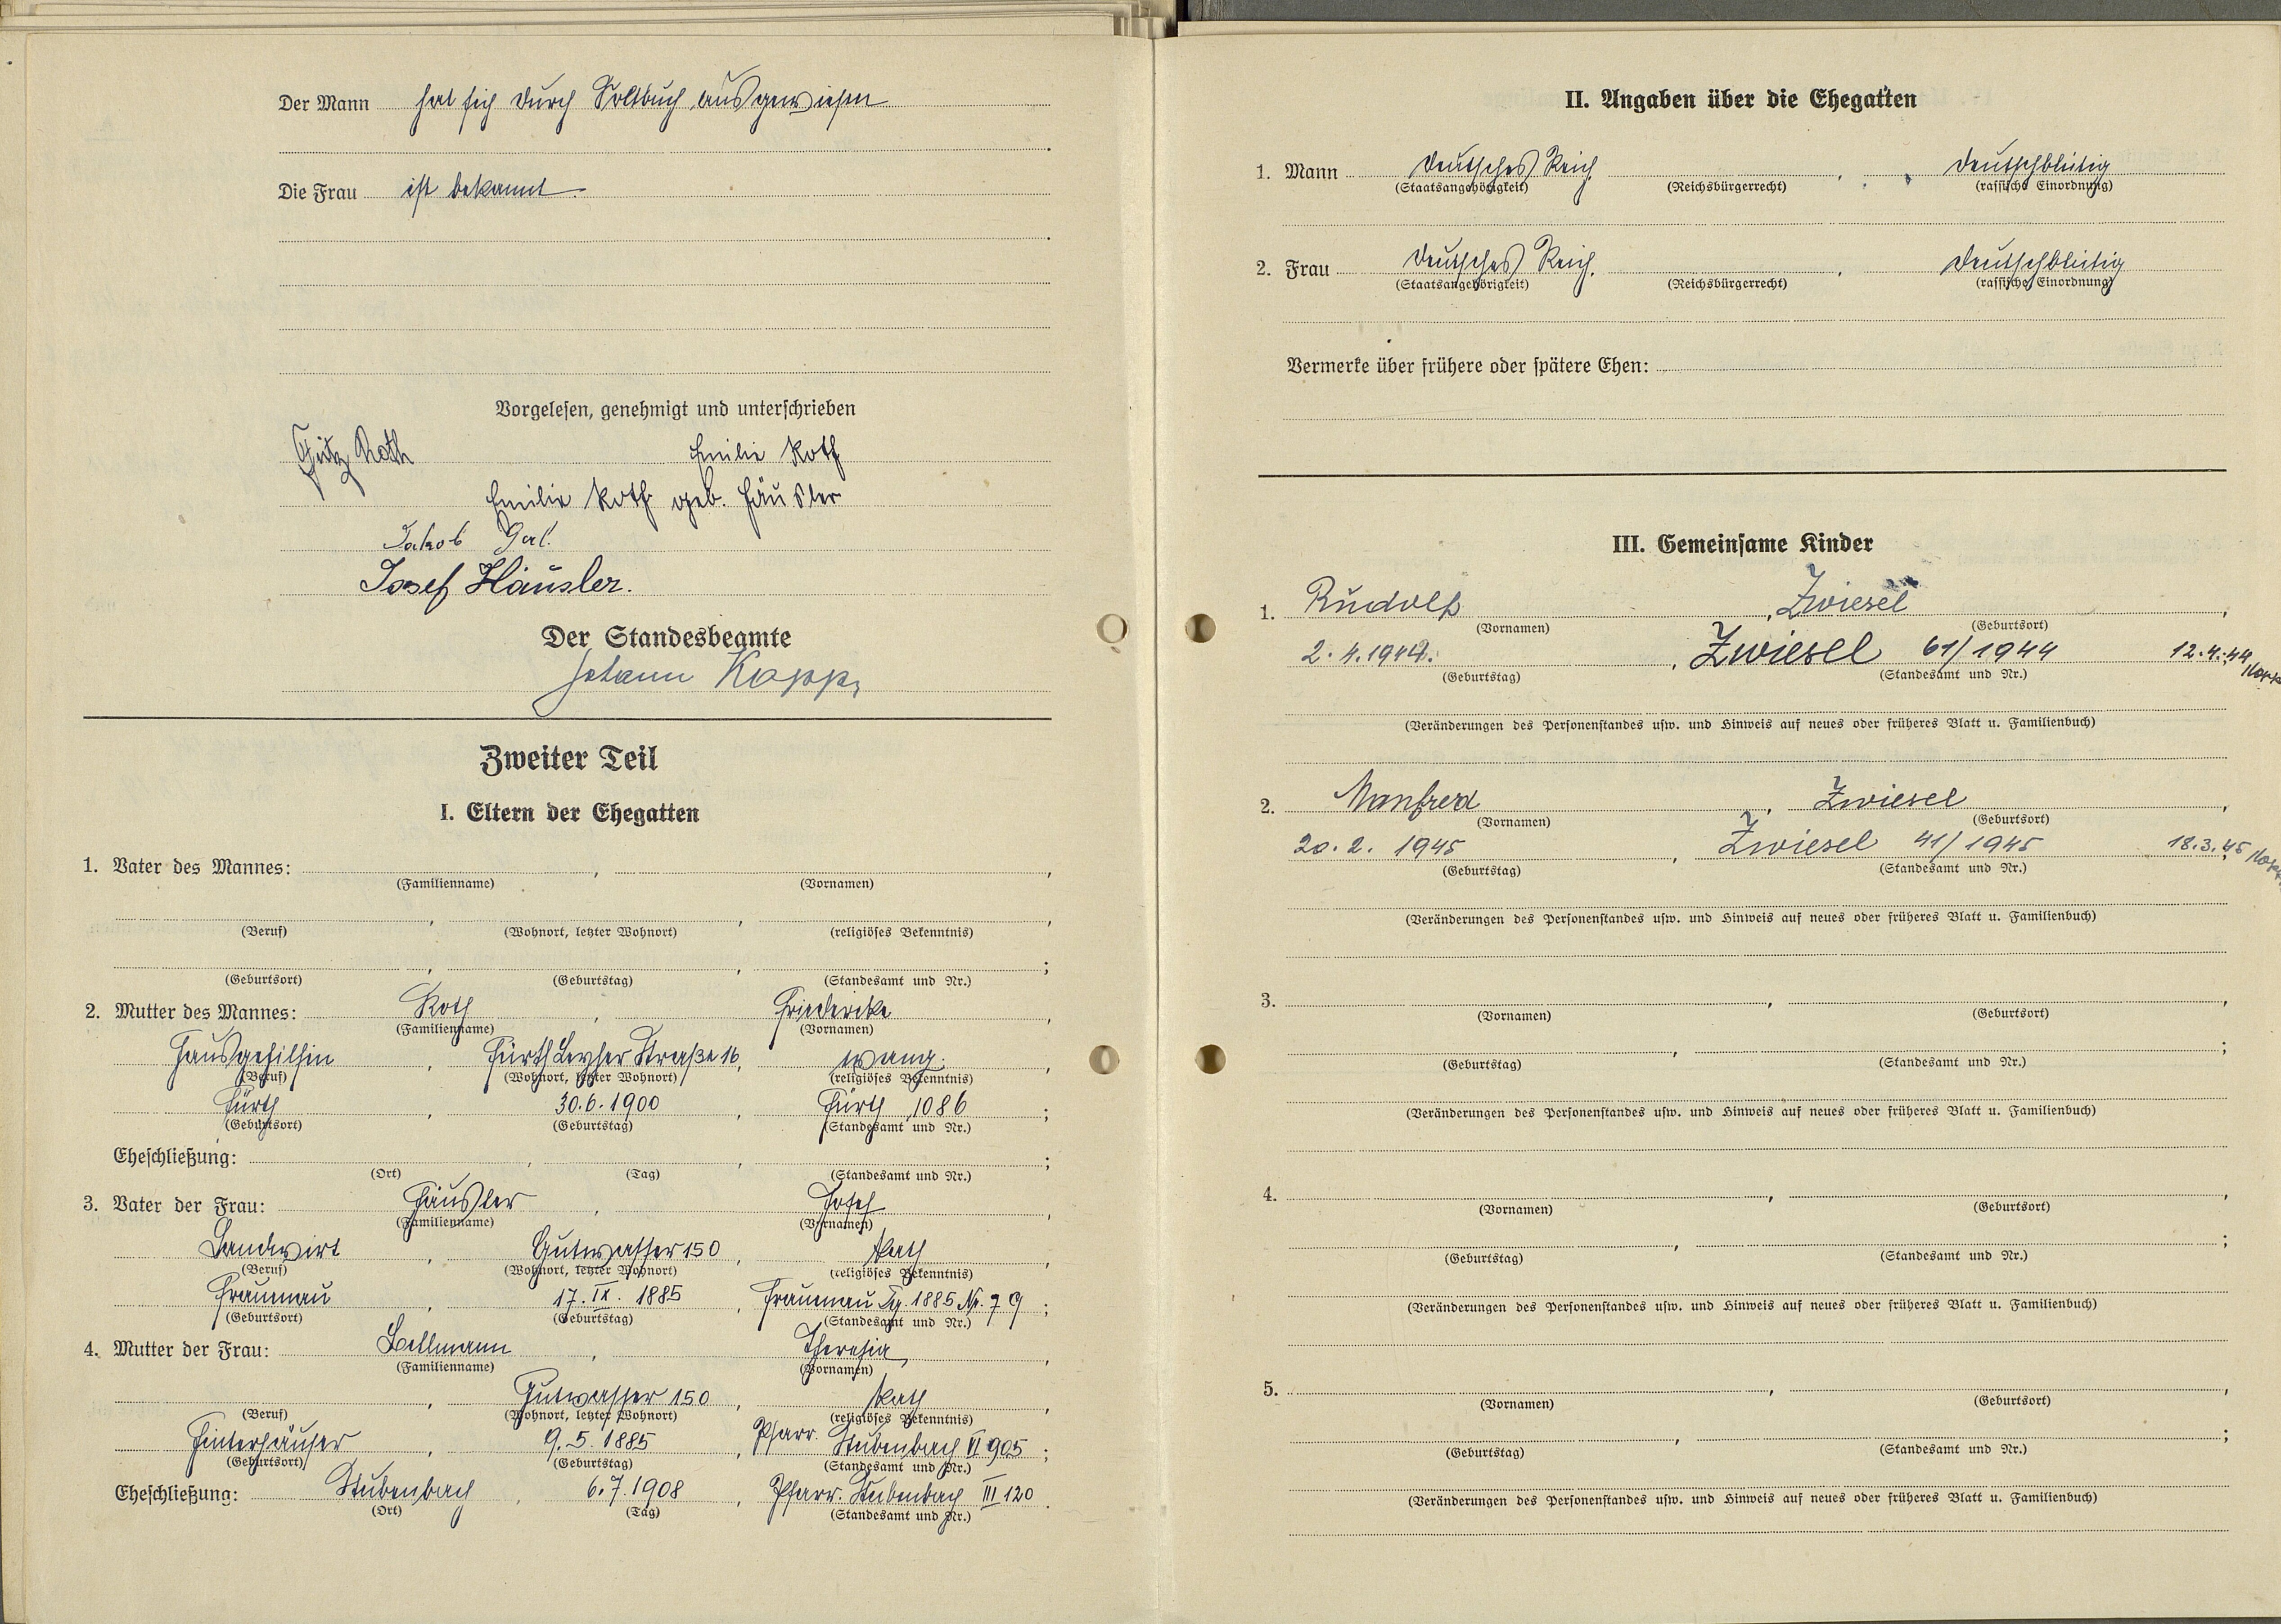 Der Mann hat sich durch Soldbuch ausgewiesen
Die Frau ist bekannt.
Vorgelesen, genehmigt und unterschrieben
Fritz Roth Emilie Roth
Emilie Roth geb. Häusler
Jakob
Josef Häusler.
Der Standesbeamte
Johann Kopp
Zweiter Teil
I. Eltern der Ehegatten
1. Vater des Mannes: , ,
(Familienname) (Vornamen)
, , ,
(Beruf) (Wohnort, letzter Wohnort) (religiöses Bekenntnis)
, , ;
(Geburtsort) (Geburtstag) (Standesamt und Nr.)
2. Mutter des Mannes: Roth , Friedericke ,
(Familienname) (Vornamen)
Hausgehilfin , Fürth Leyher Straße 16, evang. ,
(Beruf) (Wohnort, letzter Wohnort) (religiöses Bekenntnis)
Fürth , 30.6.1900 , Fürth 1086 ;
(Geburtsort) (Geburtstag) (Standesamt und Nr.)
Eheschließung: , , ;
(Ort) (Tag) (Standesamt und Nr.)
3. Vater der Frau: Häusler , Josef ,
(Familienname) (Vornamen)
Landwirt , Gutwasser 150 , kath ,
(Beruf) (Wohnort, letzter Wohnort) (religiöses Bekenntnis)
Frauenau , 17. IX. 1885 , Frauenau Tg. 1885 Nr. 79 ;
(Geburtsort) (Geburtstag) (Standesamt und Nr.)
4. Mutter der Frau: , Theresia ,
(Familienname) (Vornamen)
, Gutwasser 150 , kath ,
(Beruf) (Wohnort, letzter Wohnort) (religiöses Bekenntnis)
Hinterhäuser , 9. 5. 1885 , Pfarr. Stubenbach VI 905 ;
(Geburtsort) (Geburtstag) (Standesamt und Nr.)
Eheschließung: Stubenbach , 6. 7. 1908 , Pfarr. Stubenbach III 120 .
(Ort) (Tag) (Standesamt und Nr.)
II. Angaben über die Ehegatten
1. Mann Deutsches Reich , , deutschblütig
(Staatsangehörigkeit) (Reichsbürgerrecht) (rassische Einordnung)
2. Frau Deutsches Reich , , deutschblütig
(Staatsangehörigkeit) (Reichsbürgerrecht) (rassische Einordnung)
Vermerke über frühere oder spätere Ehen:
III. Gemeinsame Kinder
1. Rudolf , Zwiesel ,
(Vornamen) (Geburtsort)
2. 4. 1944. , Zwiesel 61/1944 12.4.44 Kopp
(Geburtstag) (Standesamt und Nr.)
(Veränderungen des Personenstandes usw. und Hinweis auf neues oder früheres Blatt u. Familienbuch)
2. Manfred , Zwiesel ,
(Vornamen) (Geburtsort)
20. 2. 1945 , Zwiesel 41/1945 18.3.45 Kopp
(Geburtstag) (Standesamt und Nr.)
(Veränderungen des Personenstandes usw. und Hinweis auf neues oder früheres Blatt u. Familienbuch)
3. , ,
(Vornamen) (Geburtsort)
, ;
(Geburtstag) (Standesamt und Nr.)
(Veränderungen des Personenstandes usw. und Hinweis auf neues oder früheres Blatt u. Familienbuch)
4. , ,
(Vornamen) (Geburtsort)
, ;
(Geburtstag) (Standesamt und Nr.)
(Veränderungen des Personenstandes usw. und Hinweis auf neues oder früheres Blatt u. Familienbuch)
5. , ,
(Vornamen) (Geburtsort)
, ;
(Geburtstag) (Standesamt und Nr.)
(Veränderungen des Personenstandes usw. und Hinweis auf neues oder früheres Blatt u. Familienbuch)